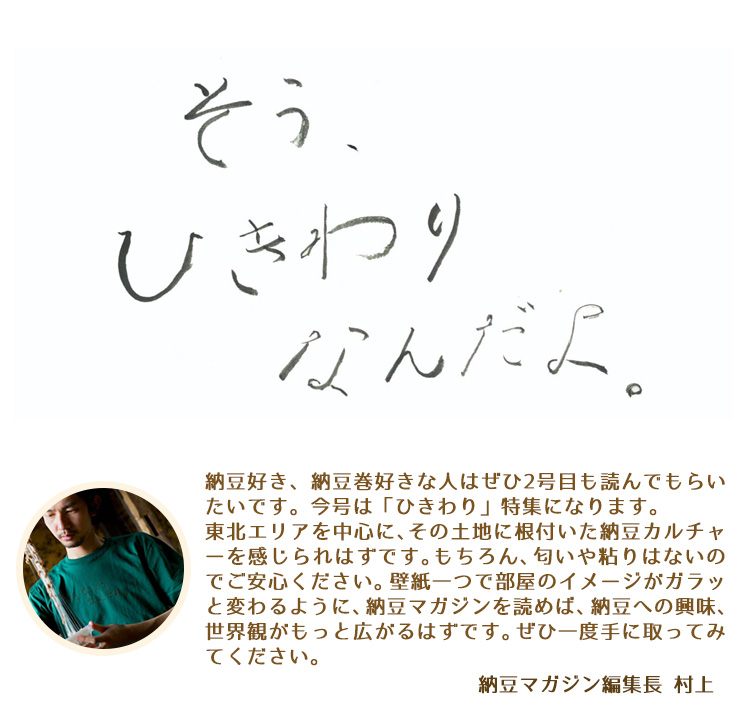 そう、
ひきわり
なんだよ。
納豆好き、納豆巻好きな人はぜひ2号目も読んでもらい
たいです。今号は「ひきわり」特集になります。
東北エリアを中心に、その土地に根付いた納豆カルチャ
ーを感じられはずです。もちろん、匂いや粘りはないの
でご安心ください。壁紙一つで部屋のイメージがガラッ
と変わるように、納豆マガジンを読めば、納豆への興味、
世界観がもっと広がるはずです。ぜひ一度手に取ってみ
てください。
納豆マガジン編集長 村上